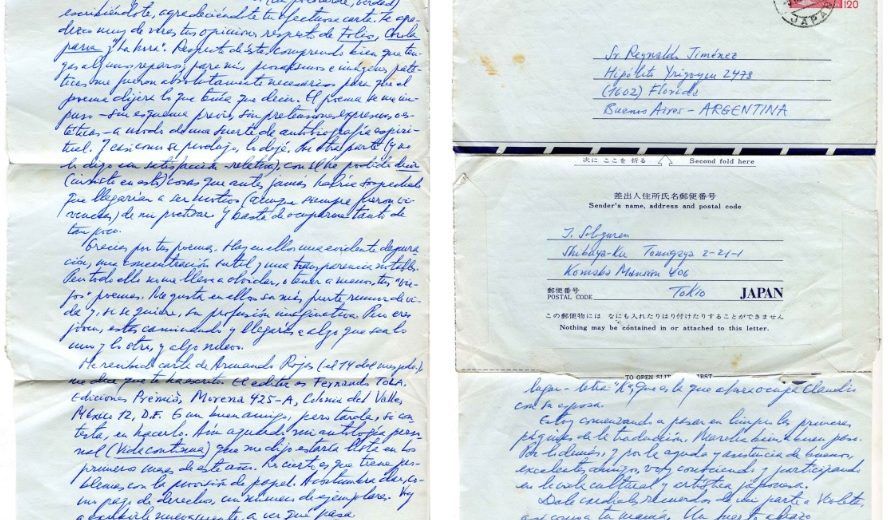 escribiéndote, agradeciéndote tu afectuosa carta. Te agradezco
muy de veras tus opiniones respecto de Folios,
y "La hora". Respecto de éste comprendo bien que tengas
algunos reparos, para mis prosaísmos e imágenes
me fueron absolutamente necesarios para que el
poema dijera lo que tenía que decir. El poema se me im-
puso - sin esquema previo, sin pretensiones expresivas, es-
téticas - a modo de una suerte de autobiografía espiri-
tual. Y así como se produjo, lo dejé. Por otra parte (y
lo digo con satisfacción relativa), con él he podido decir
(insisto en esto) cosas que antes jamás habría sospechado
que llegarían a ser escritas (aunque siempre fueron vi-
vencias) de mi
tan poco.
Gracias por tus poemas. Hay en ellos una evidente depura-
ción, una concentración sutil y una transparencia notables.
Pero todo ello no me lleva a olvidar, o tener a menos, tus "vie-
jos" poemas. Me gusta en ellos su más fuerte rumor de vi-
da y, si se quiere, su profusión imaginativa. Pero eres
joven, estás caminando y llegarás a algo que sea lo
uno y lo otro y algo nuevo.
He recibido carta de Armando Rojas (el 14 del mes pdo.)
me dice que te ha escrito. El editor es Fernando Tola.
Ediciones Premiá, Morena 425-A, Colonia del Valle,
México 12, D.F. Es un buen amigo, pero tarda, si con-
testa, en hacerlo. Aún aguardo mi antología perso-
nal (Vida continua) que me dijo estaría lista en los
primeros meses de este año. Es cierto que tiene pro-
blemas con la provisión de papel. Acostumbra dar, co-
mo pago de derechos, un número de ejemplares. Voy
a escribirle nuevamente, a ver qué pasa
120
JAPAN
Sr. Reynaldo Jiménez
Hipólito Yrigoyen 2473
(1602) Florida
Buenos Aires - ARGENTINA
次に ここを 折る Second fold here
差出人住所氏名郵便番号
Sender's name, address and postal code
J. Sologuren
Shibuya-Ku Tomigaya 2-21-1
Komaba Mansión 406
郵便番号
POSTAL CODE Tokio JAPAN
この郵便物には なにも入れたりはり付けたりすることができません
Nothing may be contained in or attached to this letter.
TO OPEN SLIT FIRST
que es la que ahora ocupa Claudio
con su esposa.
Estoy comenzando a pasar en limpio los primeros
pliegos de la traducción. Marcha bien a buen paso.
Por lo demás, y por la ayuda y asistencia de buenos,
excelentes amigos, voy conociendo y participando
en la vida cultural y artística japonesa.
Dale cordiales recuerdos de mi parte a Violeta,
así como a tu mamá. Un fuerte abrazo